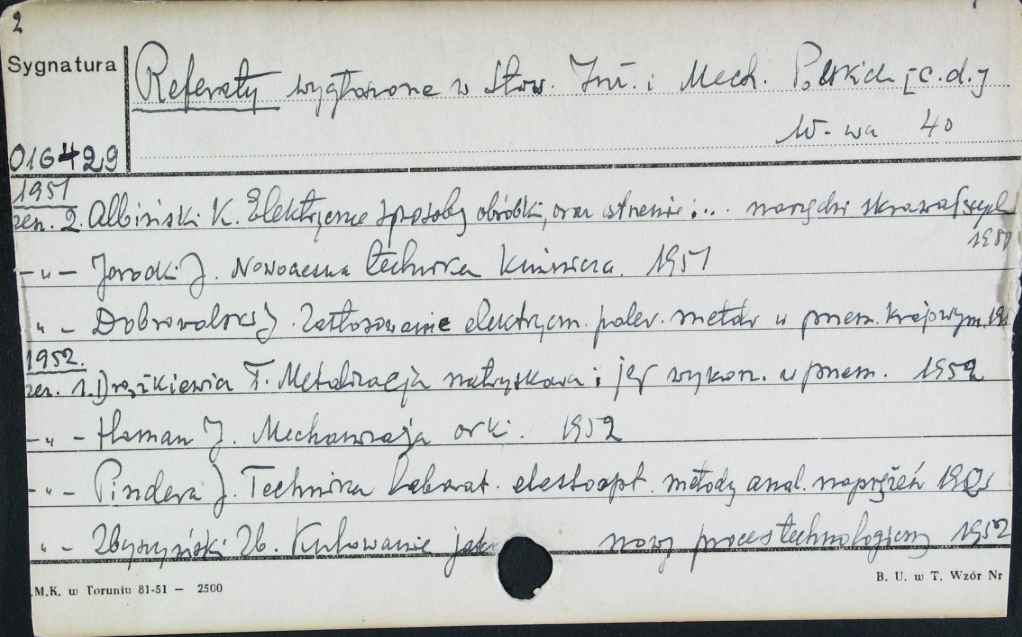 2
Sygnatura
Referaty wygłoszone w Stow. Inż. i Mech. Polskich [c.d.]
W-wa 40
016429
1951
zesz. 2. Albiński K. Elektryczne sposoby obróbki oraz ostrzenie narzędzi skrawaj.
1951
-„- Jarocki J. Nowoczesna technika kuźnicza. 1951
„- Dobrowolski J. Zastosowanie elektrycz. poler. metalu w przem. krajowym. 19
1952.
zesz. 1. Drążkiewicz T. Metalizacja natryskowa i jej wykorz. w przem. 1952
-„- Haman J. Mechanizacja orki. 1952
-„- Pindera J. Technika laborat. elastoopt. metody anal. naprężeń 1952
„- Zbyszyński Zb. Kulowanie jako nowy proces technologiczny 1952
.M.K. w Toruniu 81-51 — 2500
B. U. w T. Wzór Nr